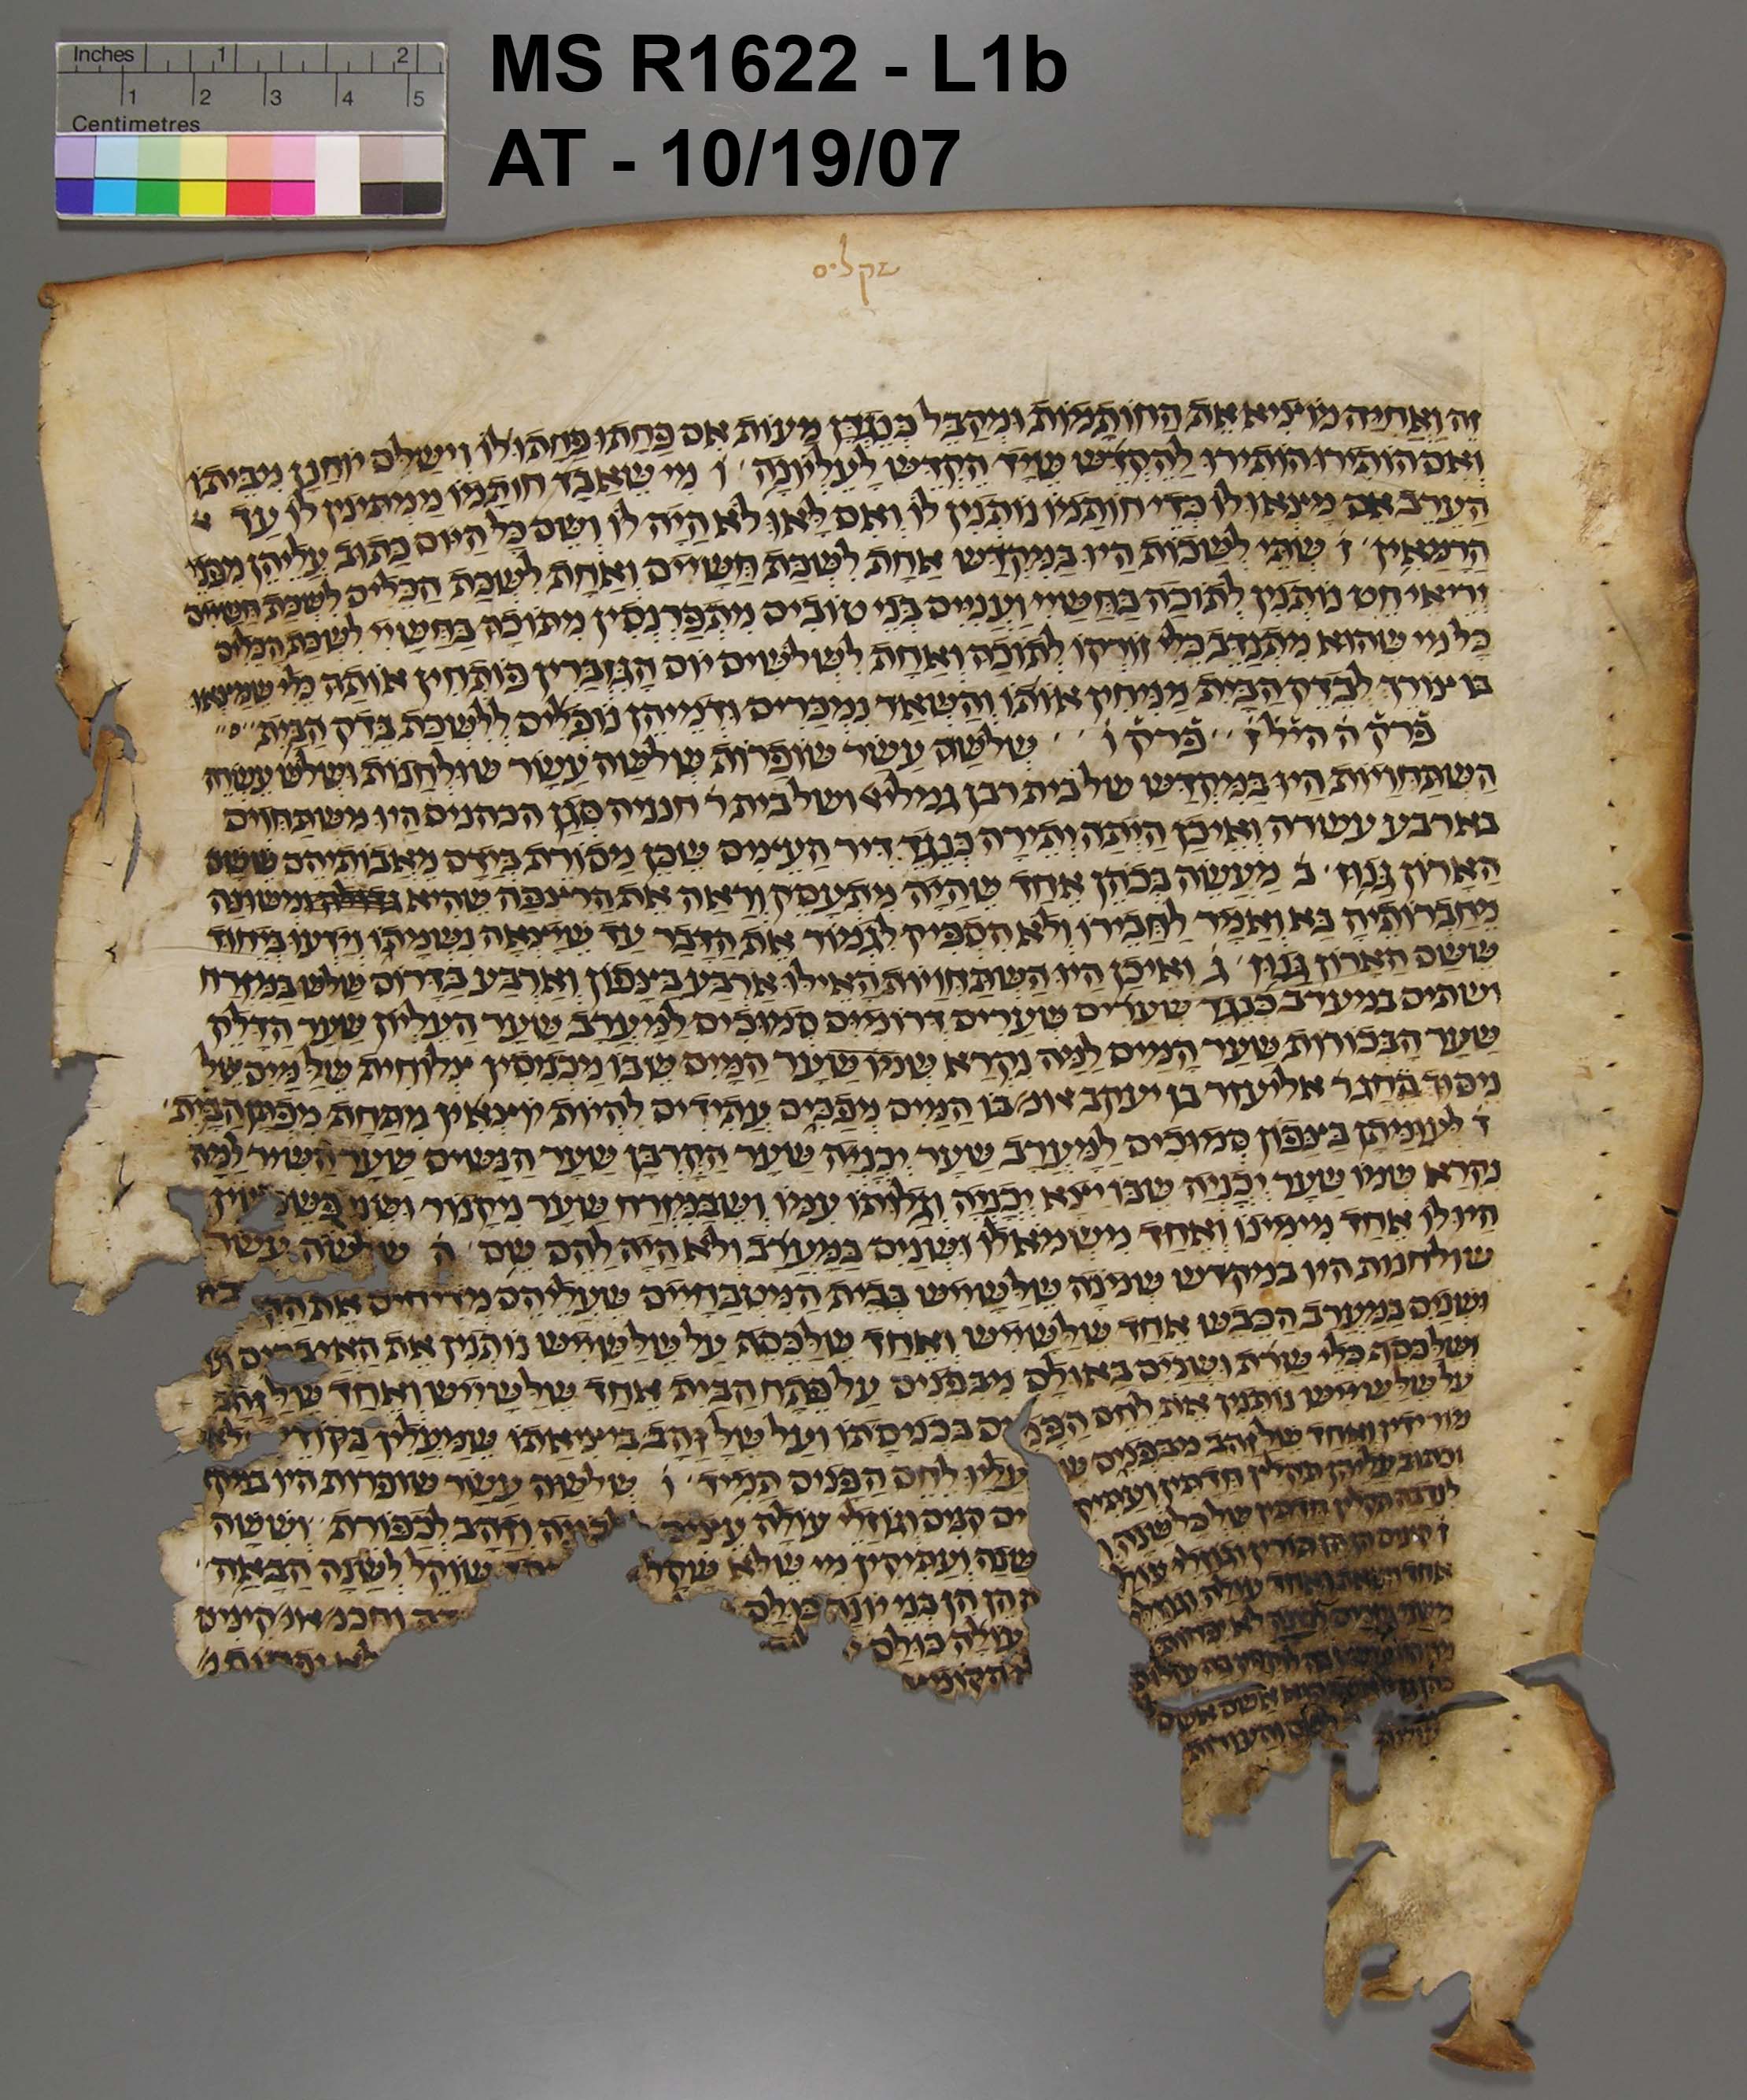 Inches 1 2
1 2 3 4 5
Centimetres
MS R1622 - L1b
AT - 10/19/07
שקלים
זה ואחיה מוציא את החותמות ומקבל כנגדן מעות אם פחתו פחתו לו וישלם יוחנן מביתו
ואם הותירו הותירו להקדש שיד הקדש לעליונה ו מי שאבד חותמו ממתינין לו עד
הערב אם מצאו לו כדי חותמו נותנין לו ואם לאו לא היה לו ושם כל היום כתוב עליהן מפני
הרמאין ז שתי לשכות היו במקדש אחת לשכת חשיים ואחת לשכת הכלים לשכת חשיים
יריאי חט נותנין לתוכה בחשיי ועניים בני טובים מתפרנסין מתוכה בחשיי לשכת הכלים
כל מי שהוא מתנדב כלי זורקו לתוכה ואחת לשלשים יום הגזברין פותחין אותה כלי שמצאו
בו צורך לבדק הבית מניחין אותו והשאר נמכרים ודמיהן נופלים ללשכת בדק הבית
פרק ה הל ז פרק ו שלשה עשר שופרות שלשה עשר שולחנות ושלש עשרה
השתחויות היו במקדש של בית רבן גמליא ושל בית ר חנניה סגן הכהנים היו משתחוים
בארבע עשרה ואיכן היתה יתירה כנגד דיר העצים שכן מסורת בידם מאבותיהם ששם
הארון גנוז ב מעשה בכהן אחד שהיה מתעסק וראה את הרצפה שהיא משונה
מחברותיה בא ואמר לחבירו ולא הספיק לגמור את הדבר עד שיצאה נשמתו וידעו ביחוד
ששם הארון גנוז ג ואיכן היו השתחויות האילו ארבע בצפון וארבע בדרום שלש במזרח
ושתים במערב כנגד שערים שערים דרומים סמוכים למערב שער העליון שער הדלק
שער הבכורות שער המים למה נקרא שמו שער המים שבו מכניסין צלוחית של מים של
ניסוך בחג ר אליעזר בן יעקב אומ בו המים מפכים עתידים להיות יוצאין מתחת מפתן הבית
ד לעומתן בצפון סמוכים למערב שער יכניה שער הקרבן שער הנשים שער השיר למה
נקרא שמו שער יכניה שבו יצא יכניה וגלותו עמו ושבמזרח שער ניקנור ושני
היו לו אחד מימינו ואחד משמאלו ושנים במערב ולא היה להם שם ה שלשה עשר
שולחנות היו במקדש שמנה שלשיש בבית המטבחיים שעליהם מדיחים את הק
ושנים במערב הכבש אחד שלשיש ואחד שלכסף על שלשיש נותנין את האיברים
ושלכסף כלי שרת ושנים באולם מבפנים על פתח הבית אחד שלשיש ואחד שלזהב
על שלשיש נותנין את לחם הפנים בכניסתו ועל שלזהב ביציאתו שמעלין בקודש ולא
מורידין ואחד שלזהב מבפנים ש עליו לחם הפנים תמיד ו שלשה עשר שופרות היו במק
וכתוב עליהן תקלין חדתין ועתיק ים קנים וגוזלי עולה עצים לבונה וזהב לכפורת וששה
לנדבה תקלין חדתין של כל שנה שנה ועתיקין מי שלא שקל שוקל לשנה הבאה
קינים הן הן תורין וגוזלי עול הן הן בני יונה כולם וחכמ או קינים
אחד חטאת ואחד עולה וגוזלי עולה כולם